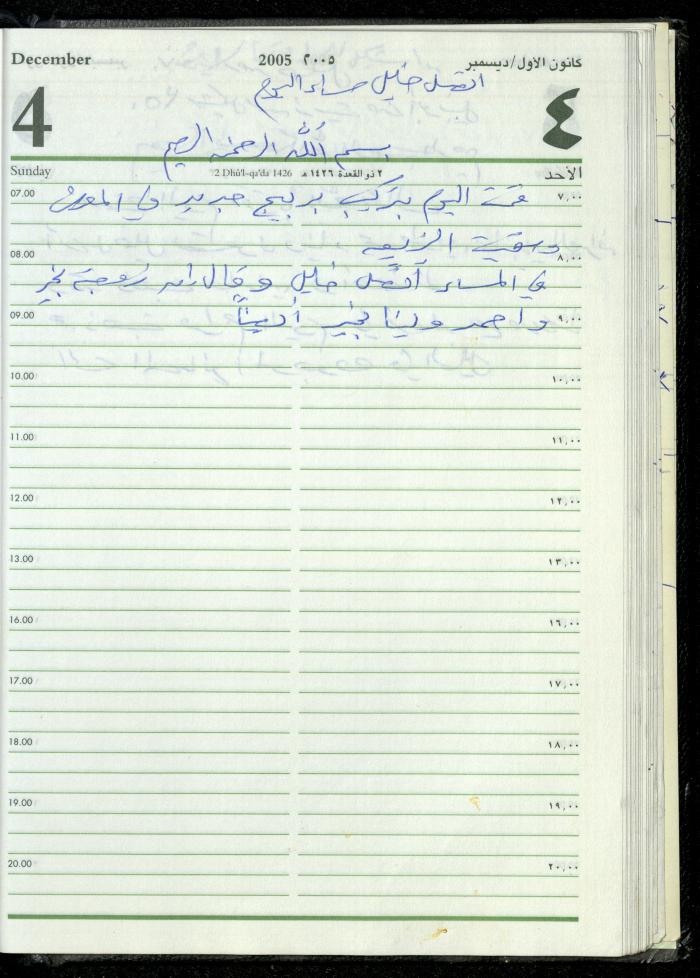 December 2005 ٢٠٠٥ كانون الأول/ديسمبر
اتصل خليل مساء اليوم
4 ٤
بسم الله الرحمن الرحيم
Sunday 2 Dhû'l-qa'da 1426 ٢ ذو القعدة ١٤٢٦ هـ الأحد
07.00 ٧,٠٠
قمت اليوم بتركيب بربيج جديد في
وسقيت الزريعه
08.00 ٨,٠٠
في المساء أتصل خليل وقال انه زوجته بخير
09.00 ٩,٠٠
واحمد ودينا بخير أيضاً
10.00 ١٠,٠٠
11.00 ١١,٠٠
12.00 ١٢,٠٠
13.00 ١٣,٠٠
16.00 ١٦,٠٠
17.00 ١٧,٠٠
18.00 ١٨,٠٠
19.00 ١٩,٠٠
20.00 ٢٠,٠٠